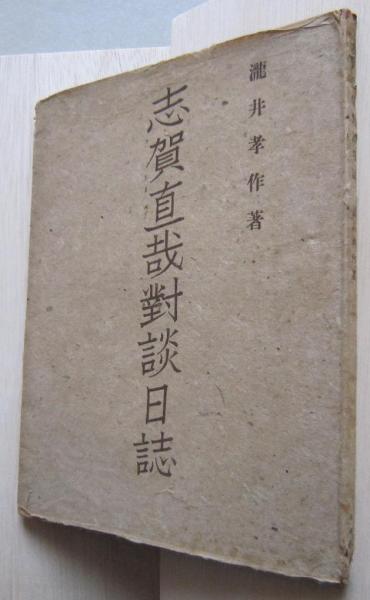 瀧井孝作著
志賀直哉對談日誌